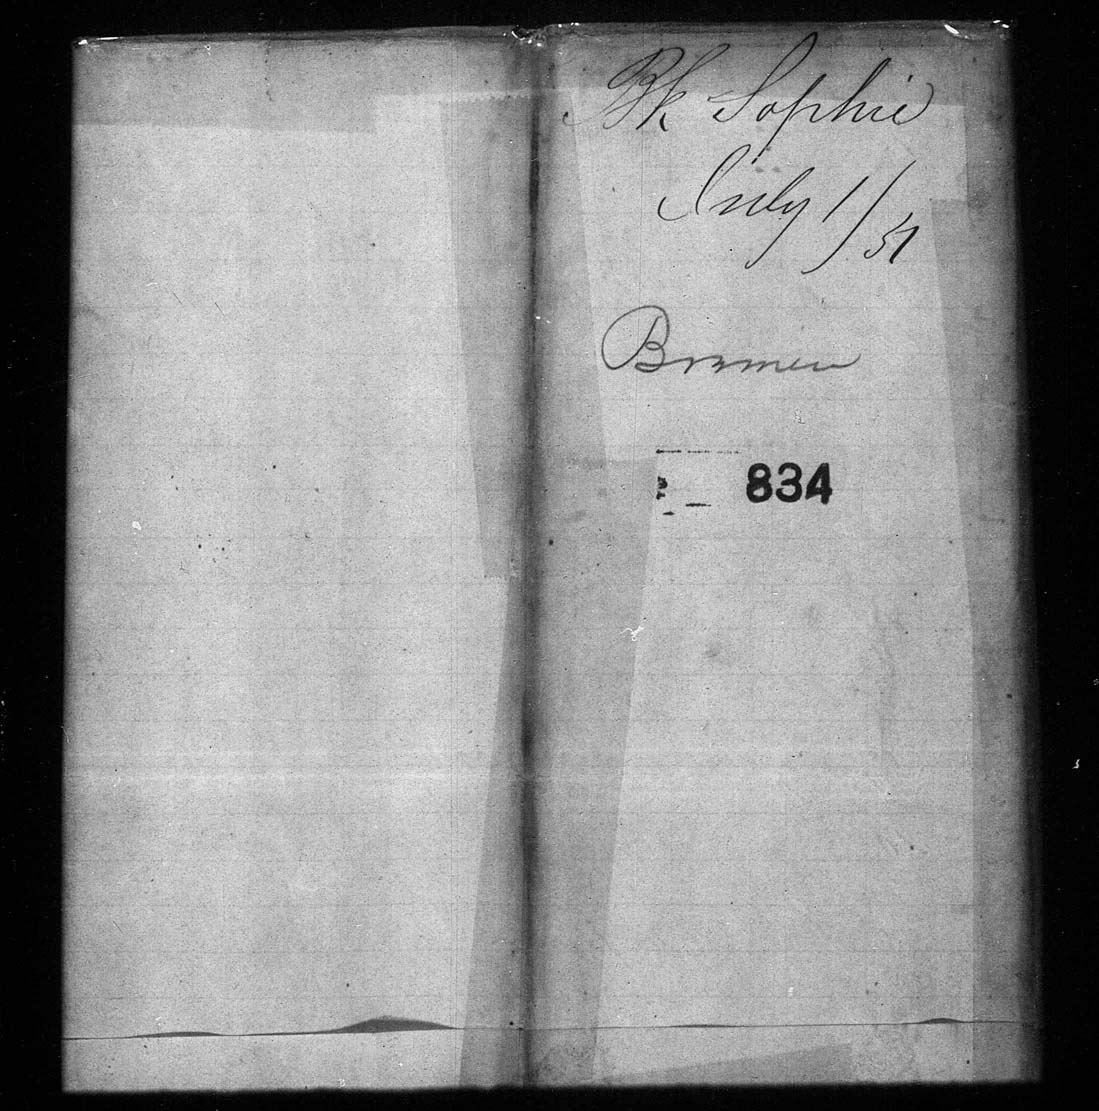 Bk Sophie
July 1/51
Bremen
834